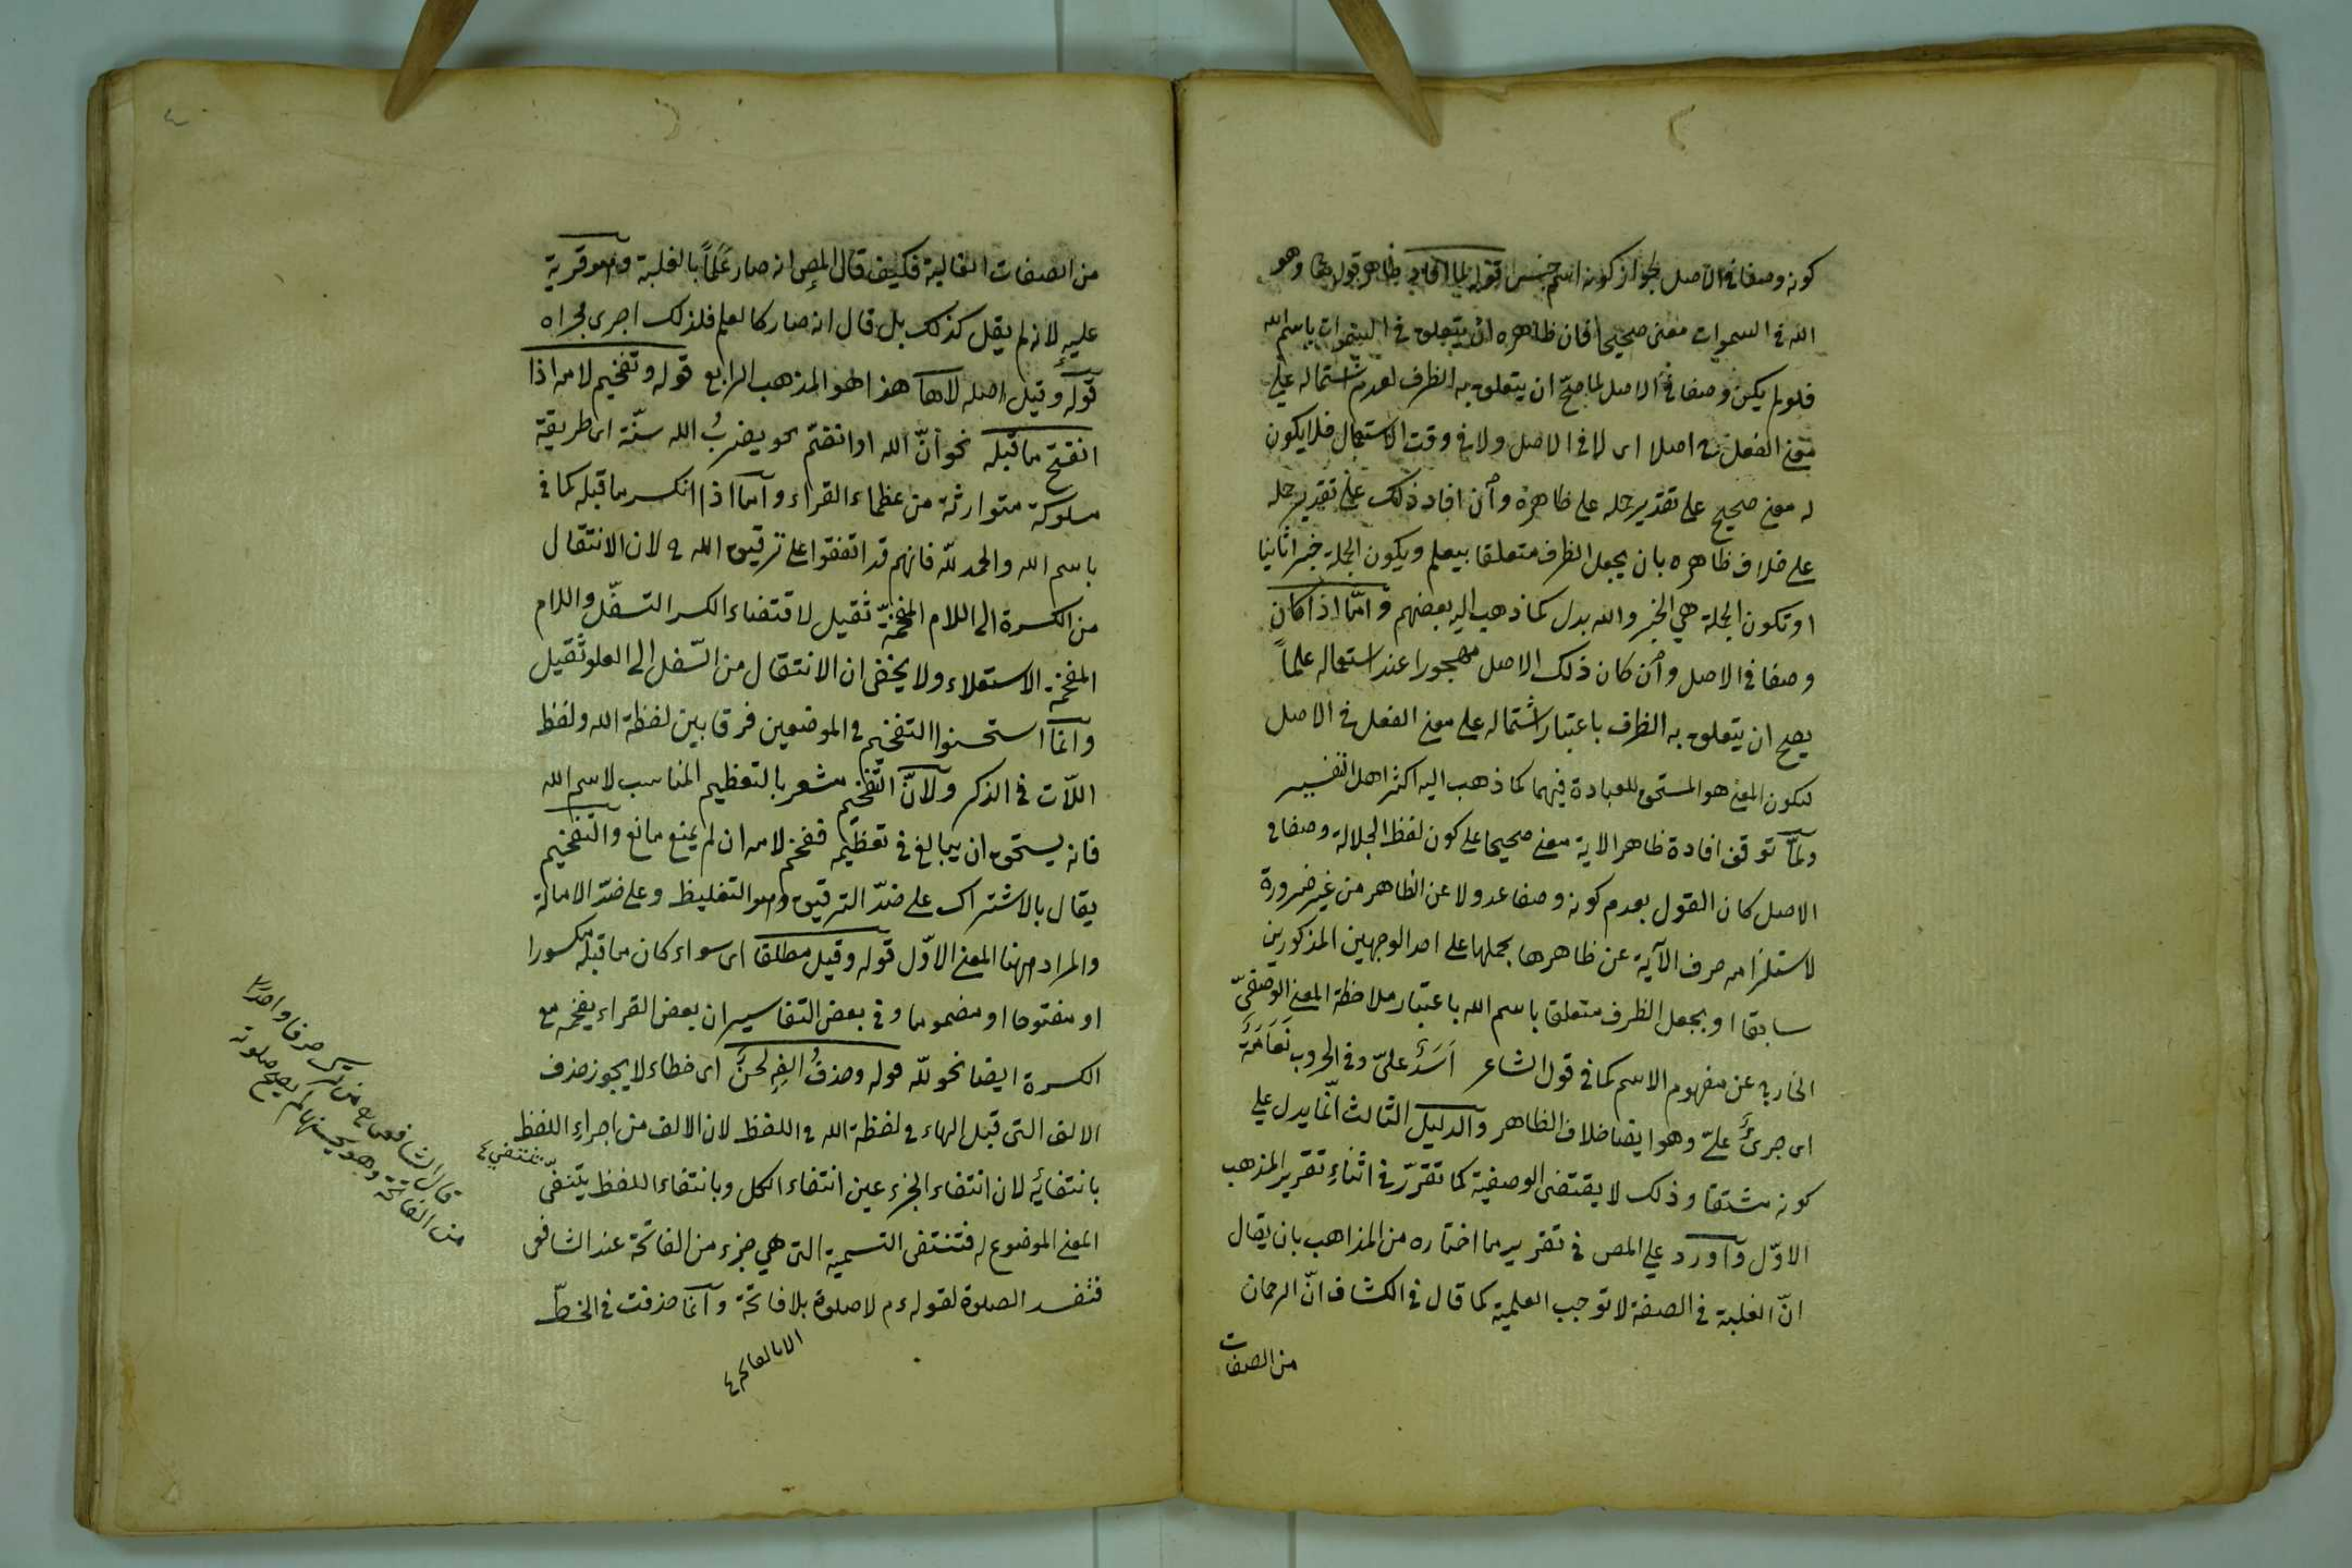 كونه وصفا في الاصل لجواز كونه اسم جنس قوله لما افاد ظاهر قوله تعا وهو
الله في السموات معنى صحيحا فان ظاهره ان يتعلق في السموات باسم الله
فلو لم يكن وصفا في الاصل لما صحّ ان يتعلق به الظرف لعدم اشتماله على
معنى الفعل ح اصلا اى لا في الاصل ولا في وقت الاستعمال فلا يكون
له معنى صحيح على تقدير حمله على ظاهره وان افاد ذلك على تقدير حمله
على خلاف ظاهره بان يجعل الظرف متعلقا بيعلم ويكون الجملة خبرا ثانيا
او تكون الجملة هي الخبر والله بدل كما ذهب اليه بعضهم وامّا اذا كان
وصفا في الاصل وان كان ذلك الاصل مهجورا عند استعماله علماً
يصح ان يتعلق به الظرف باعتبار اشتماله على معنى الفعل في الاصل
ليكون المعنى هو المستحق للعبادة فيهما كما ذهب اليه اكثر اهل التفسير
ولمّا توقف افادة ظاهر الاية معنى صحيحا على كون لفظ الجلالة وصفا في
الاصل كان القول بعدم كونه وصفا عدولا عن الظاهر من غير ضرورة
لاستلزامه صرف الآية عن ظاهرها بحملها على احد الوجهين المذكورين
سابقا او بجعل الظرف متعلقا باسم الله باعتبار ملاحظة المعنى الوصفىّ
الخارج عن مفهوم الاسم كما في قول الشاعر اَسَدٌ علىّ وفي الحروب نَعَامَةٌ
اى جرئٌ علىّ وهو ايضا خلاف الظاهر والدليل الثالث انّما يدل على
كونه مشتقا وذلك لا يقتضى الوصفية كما تقرّر في اثناء تقرير المذهب
الاوّل واورد على المص في تقرير ما اختاره من المذاهب بان يقال
انّ الغلبة في الصفة لا توجب العلمية كما قال في الكشاف انّ الرحمان
من الصفات
من الصفات الغالبة فكيف قال المص انه صار عَلَماً بالغلبة وهو فرية
عليه لانه لم يقل كذلك بل قال انه صار كالعلم فلذلك اجرى مجراه
قوله وقيل اصله لاها هذا هو المذهب الرابع قوله وتفخيم لامه اذا
انفتح ما قبله نحو انّ الله او انضمّ نحو يضربُ الله سنّة اى طريقة
مسلوكة متوارثة من عظماء القراء وامّا اذا انكسر ما قبله كما في
باسم الله والحمد لله فانهم قد اتفقوا على ترقيق الله ح لان الانتقال
من الكسرة الى اللام المفخمة ثقيل لاقتضاء الكسر التسفّل واللام
المفخمة الاستعلاء ولا يخفى ان الانتقال من السّفل الى العلو ثقيل
وانما استحسنوا التفخيم في الموضعين فرقا بين لفظة الله ولفظ
اللّات في الذكر ولانّ التفخيم مشعر بالتعظيم المناسب لاسم الله
فانه يستحق ان يبالغ في تعظيمه ففخم لامه ان لم يمنع مانع والتفخيم
يقال بالاشتراك على ضدّ الترقيق وهو التغليظ وعلى ضدّ الامالة
والمراد ههنا المعنى الاوّل قوله وقيل مطلقا اى سواء كان ما قبله مكسورا
او مفتوحا او مضموما وفي بعض التفاسير ان بعض القراء يفخمه مع
الكسرة ايضا نحو لله قوله وحذفُ الفه لحنٌ اى خطاء لا يجوز حذف
الالف التى قبل الهاء في لفظة الله في اللفظ لان الالف من اجزاء اللفظ
بانتفائه لان انتفاء الجزء عين انتفاء الكل وبانتفاء اللفظ ينتفى
المعنى الموضوع له فتنتفى التسمية التى هي جزء من الفاتحة عند الشافعى
فتفسد الصلوة لقوله ءم لا صلوة بلا فاتحة وانما حذفت في الخطّ
قال الشافعى من ترك حرفا واحدا
من الفاتحة وهو يحسنها لم يصح صلوته